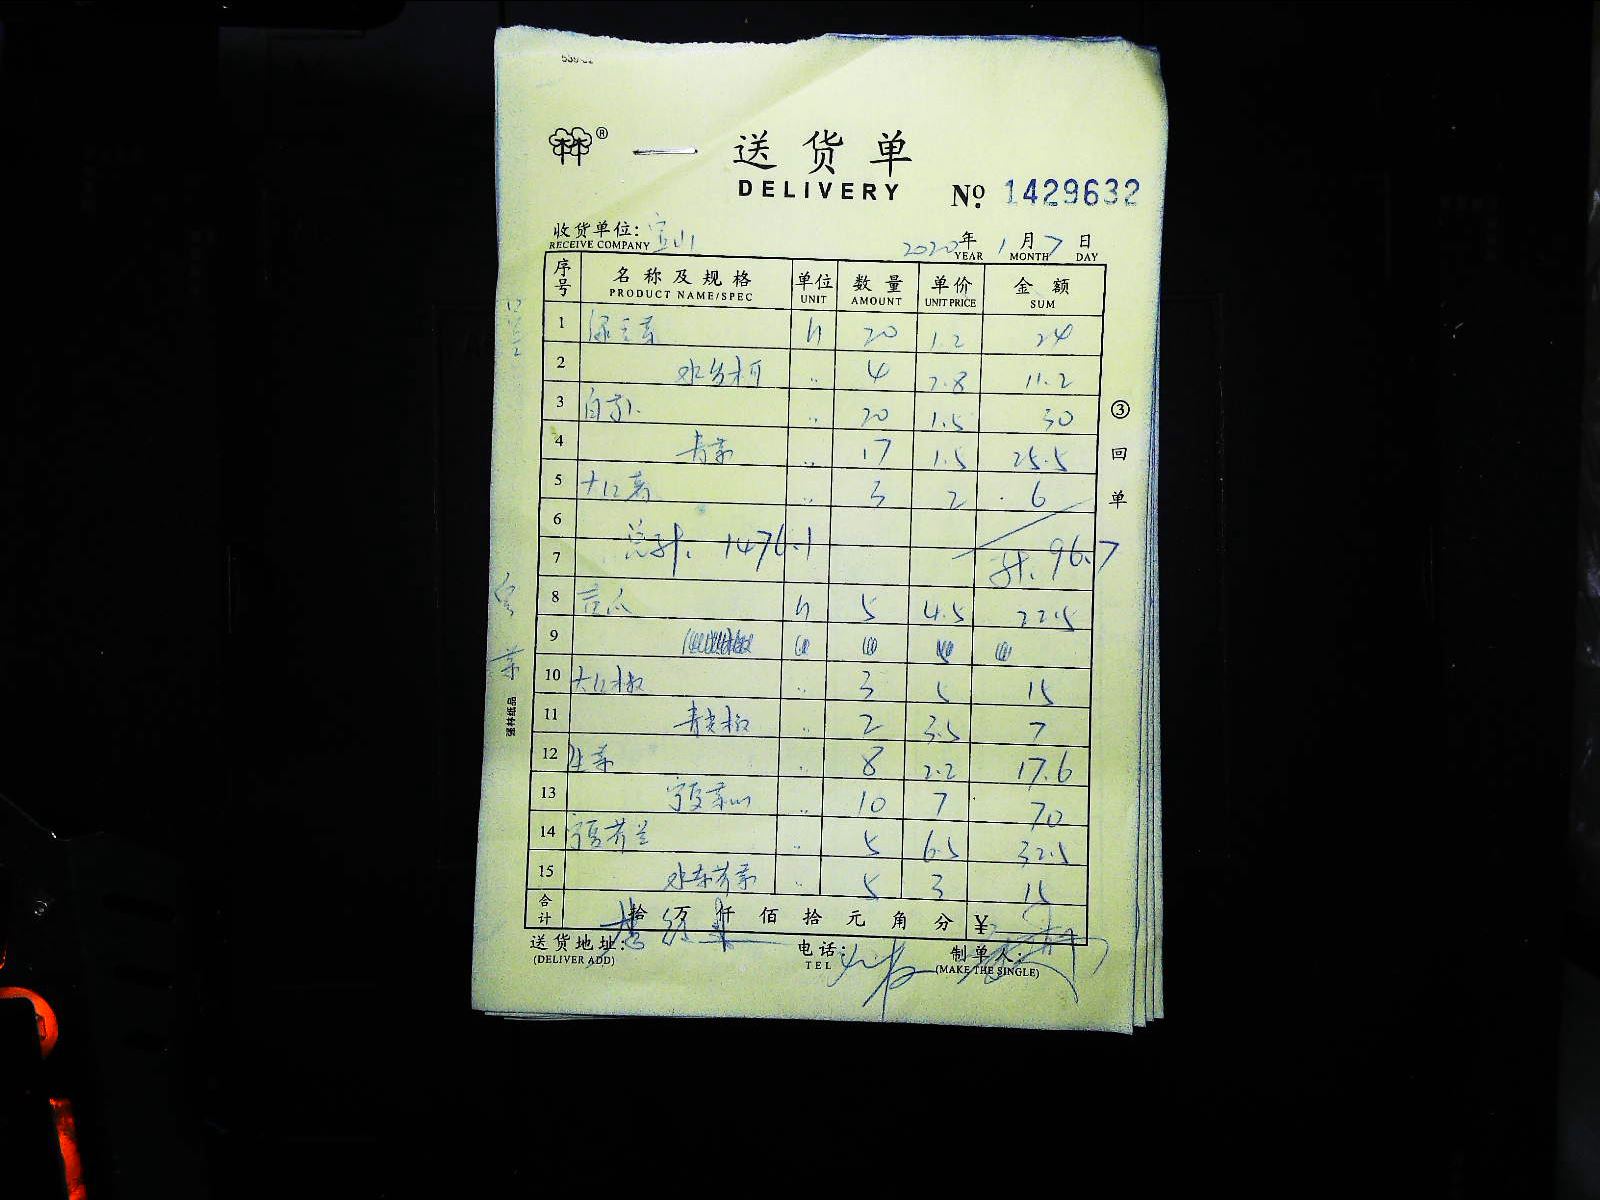 送货单
DELIVERY № 1429632
收货单位: 宝山 2020年 1月 7日
RECEIVE COMPANY YEAR MONTH DAY
序号 名称及规格 单位 数量 单价 金额
PRODUCT NAME/SPEC UNIT AMOUNT UNIT PRICE SUM
1 20 1.2 24
2 4 2.8 11.2
3 20 1.5 30
4 青菜 17 1.5 25.5
5 3 2 6
6
7 总计. 1476.1 计. 96.7
8 苦瓜 5 4.5 22.5
9
10 大红椒 3 5 15
11 青尖椒 2 3.5 7
12 生菜 8 2.2 17.6
13 宁夏菜心 10 7 70
14 宁夏芥兰 5 6.5 32.5
15 水东芥菜 5 3 15
合计 拾 万 仟 佰 拾 元 角 分 ¥
送货地址: 电话: 制单人:
(DELIVER ADD) TEL (MAKE THE SINGLE)
③回单
强林纸品